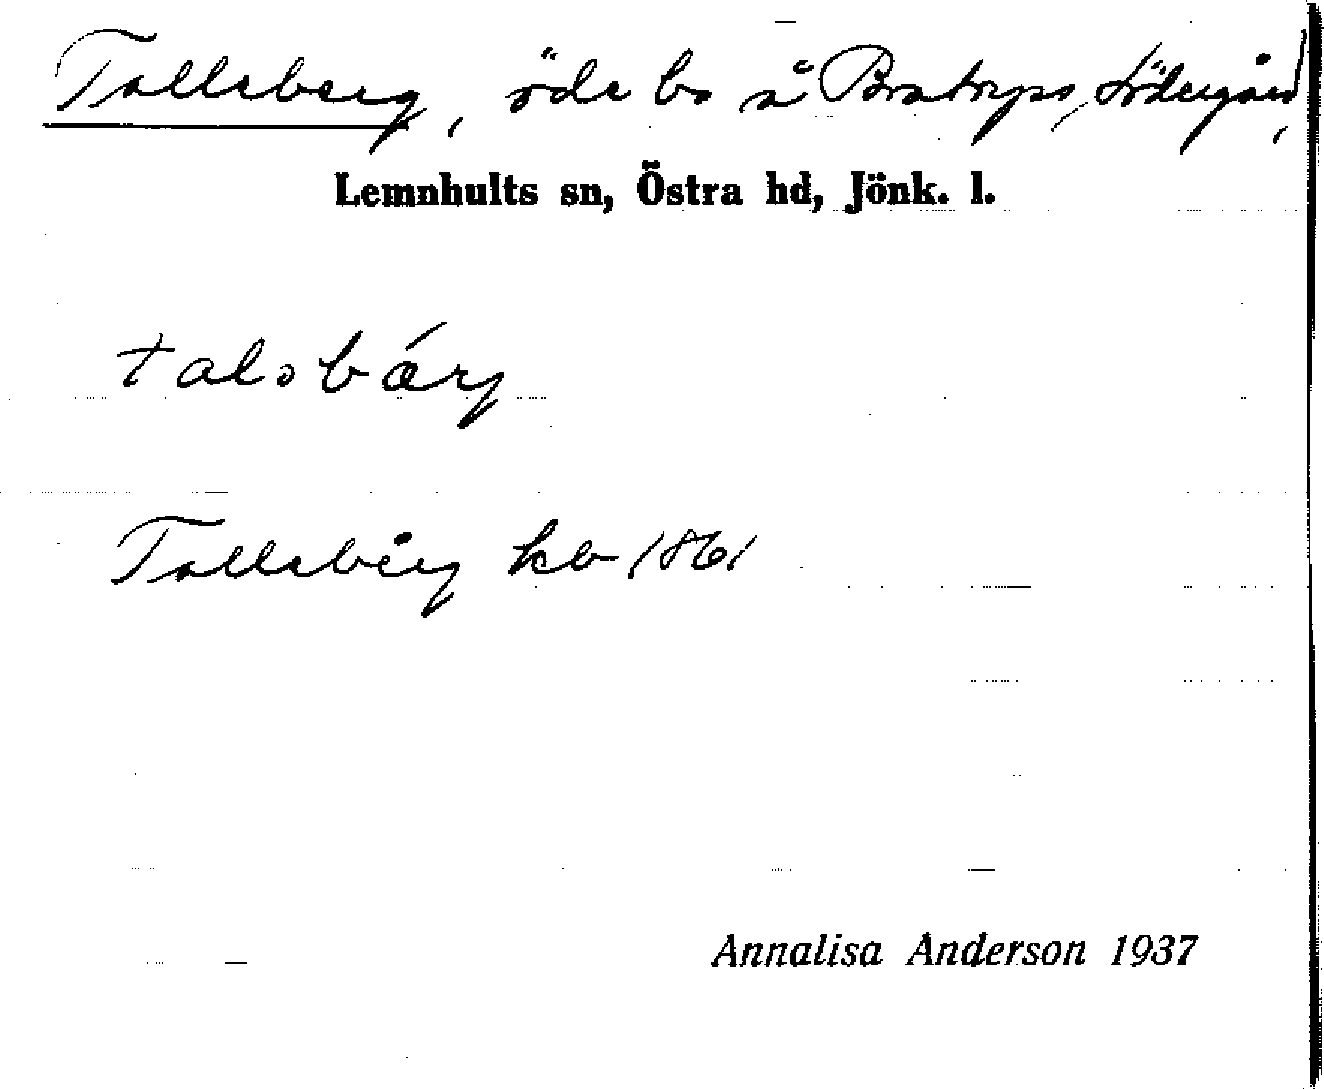 Tallsberg, öde bs å Södergård,
Lemnhults sn, Östra hd, Jönk. l.
talsbǽrj
Tallsberg kb 1861
Annalisa Anderson 1937